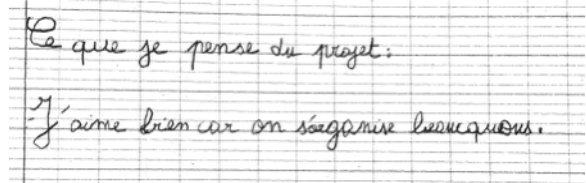 Ce que je pense du projet:
J'aime bien car on s'organise beaucquous.